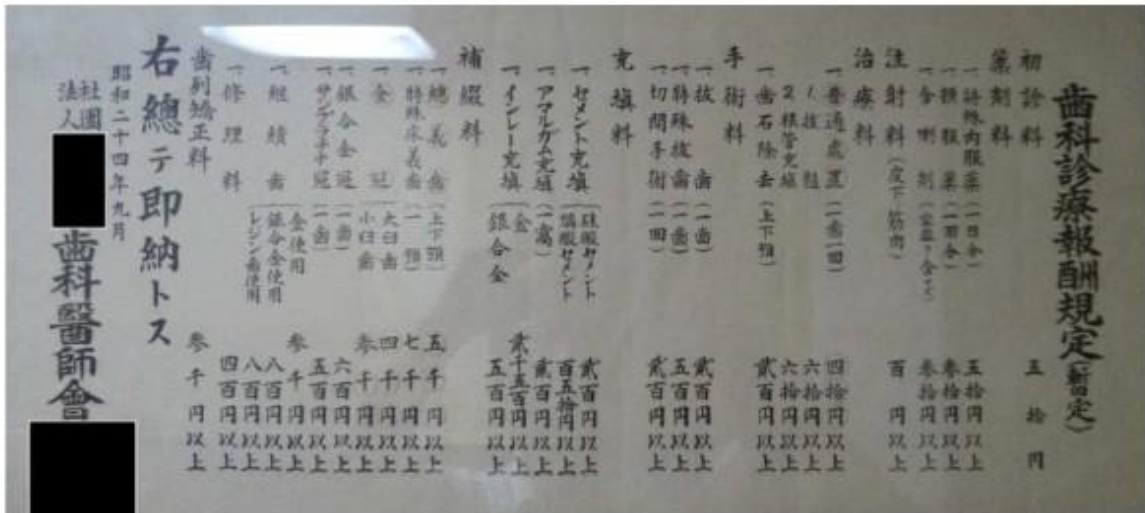 歯科診療報酬規定(暫定)
初診料 五拾円
薬剤料
一、特殊内服薬(一日分) 五拾円以上
一、頓服薬(一回分) 参拾円以上
一、含嗽剤 参拾円以上
注射料(皮下筋肉) 百円以上
治療料
一、普通処置(一歯一回) 四拾円以上
1抜髄 六拾円以上
2根管充填 六拾円以上
一、歯石除去(上下顎) 貮百円以上
手術料
一、抜歯(一歯) 貮百円以上
一、特殊抜歯(一歯) 五百円以上
一、切開手術(一回) 貮百円以上
充填料
一、セメント充填 硅酸セメント 貮百円以上
燐酸セメント 百五拾円以上
一、アマルガム充填(一窩) 貮百円以上
一、インレー充填 金 貮千五百円以上
銀合金 五百円以上
補綴料
一、總義歯(上下顎) 五千円以上
一、特殊床義歯(一顎) 七千円以上
一、金冠 大臼歯 四千円以上
小臼歯 参千円以上
一、銀合金冠(一歯) 六百円以上
一、サンプラチナ冠(一歯) 五百円以上
一、継続歯 金使用 参千円以上
銀合金使用 八百円以上
レジン歯使用 八百円以上
一、修理料 四百円以上
歯列矯正料 参千円以上
右總テ即納トス
昭和二十四年九月
社團法人
歯科醫師會